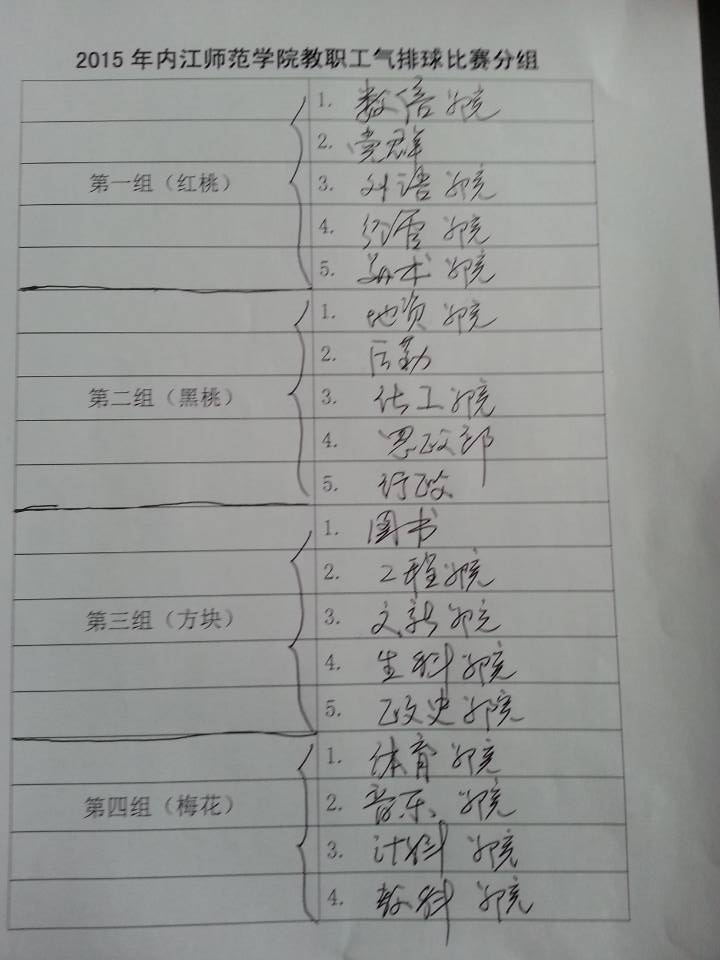 2015年内江师范学院教职工气排球比赛分组
第一组（红桃）
1. 数信学院
2. 党群
3. 外语学院
4. 经管学院
5. 美术学院
第二组（黑桃）
1. 地资学院
2. 后勤
3. 化工学院
4. 思政部
5. 行政
第三组（方块）
1. 图书
2. 工程学院
3. 文新学院
4. 生科学院
5. 政史学院
第四组（梅花）
1. 体育学院
2. 音乐学院
3. 计科学院
4. 教科学院